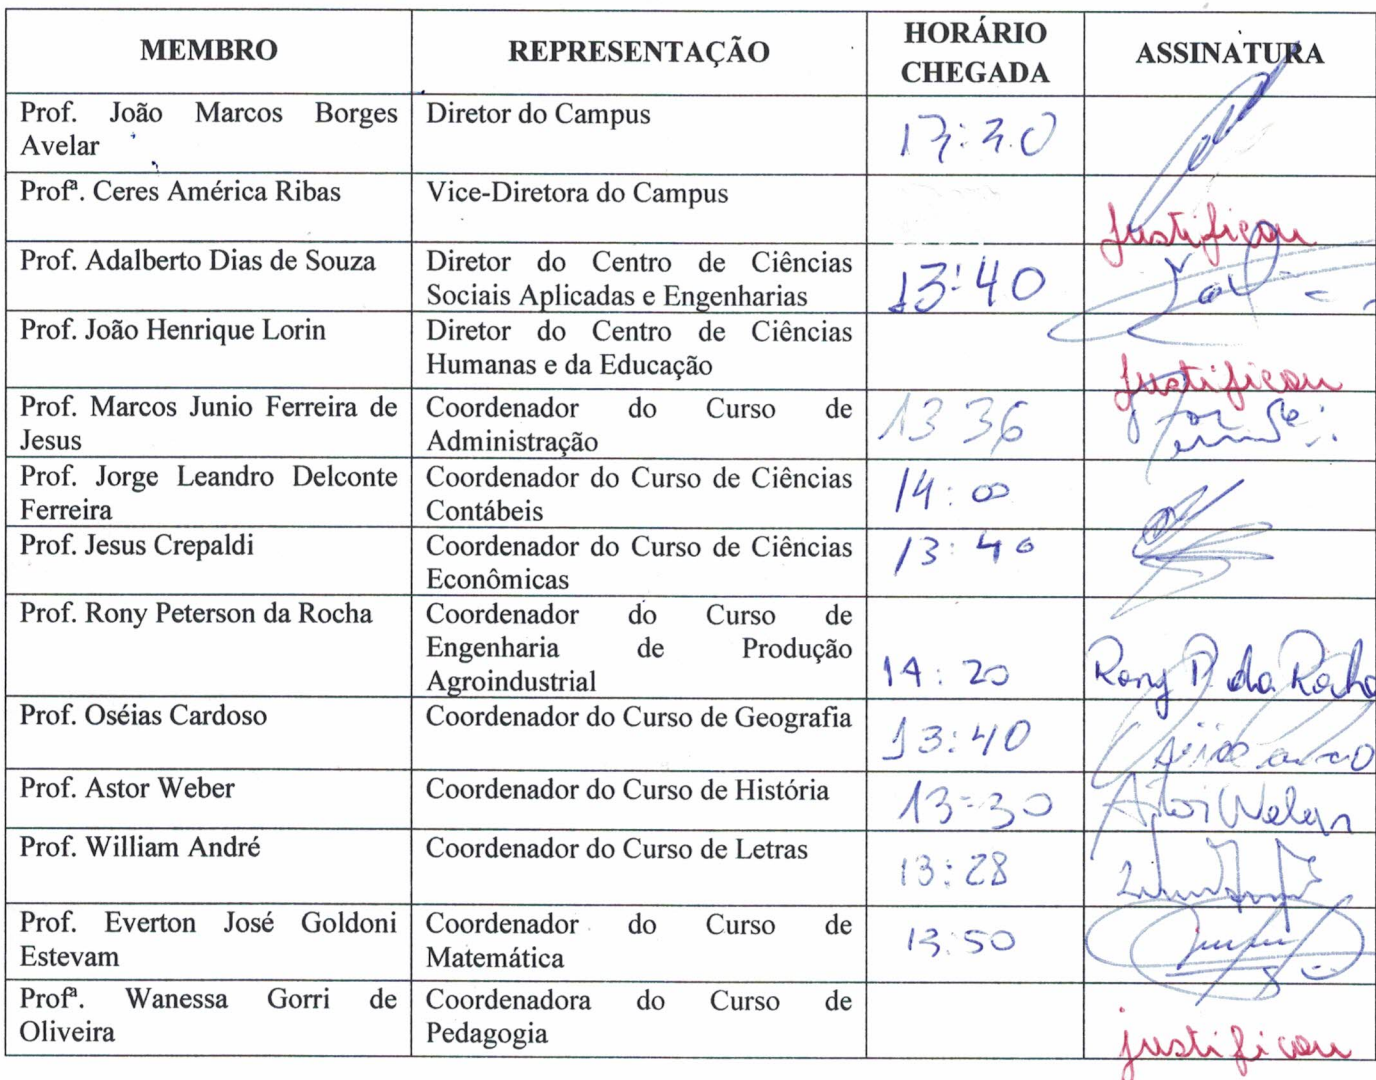 MEMBRO REPRESENTAÇÃO HORÁRIO CHEGADA ASSINATURA
Prof. João Marcos Borges Diretor do Campus 13:30
Avelar
Profª. Ceres América Ribas Vice-Diretora do Campus justificou
Prof. Adalberto Dias de Souza Diretor do Centro de Ciências 13:40
Sociais Aplicadas e Engenharias
Prof. João Henrique Lorin Diretor do Centro de Ciências
Humanas e da Educação justificou
Prof. Marcos Junio Ferreira de Coordenador do Curso de 13 36
Jesus Administração
Prof. Jorge Leandro Delconte Coordenador do Curso de Ciências 14:00
Ferreira Contábeis
Prof. Jesus Crepaldi Coordenador do Curso de Ciências 13:40
Econômicas
Prof. Rony Peterson da Rocha Coordenador do Curso de
Engenharia de Produção
Agroindustrial 14:20 Rony P. da Rocha
Prof. Oséias Cardoso Coordenador do Curso de Geografia 13:40
Prof. Astor Weber Coordenador do Curso de História 13:30 Astor Weber
Prof. William André Coordenador do Curso de Letras 13:28
Prof. Everton José Goldoni Coordenador do Curso de 13:50
Estevam Matemática
Profª. Wanessa Gorri de Coordenadora do Curso de
Oliveira Pedagogia justificou